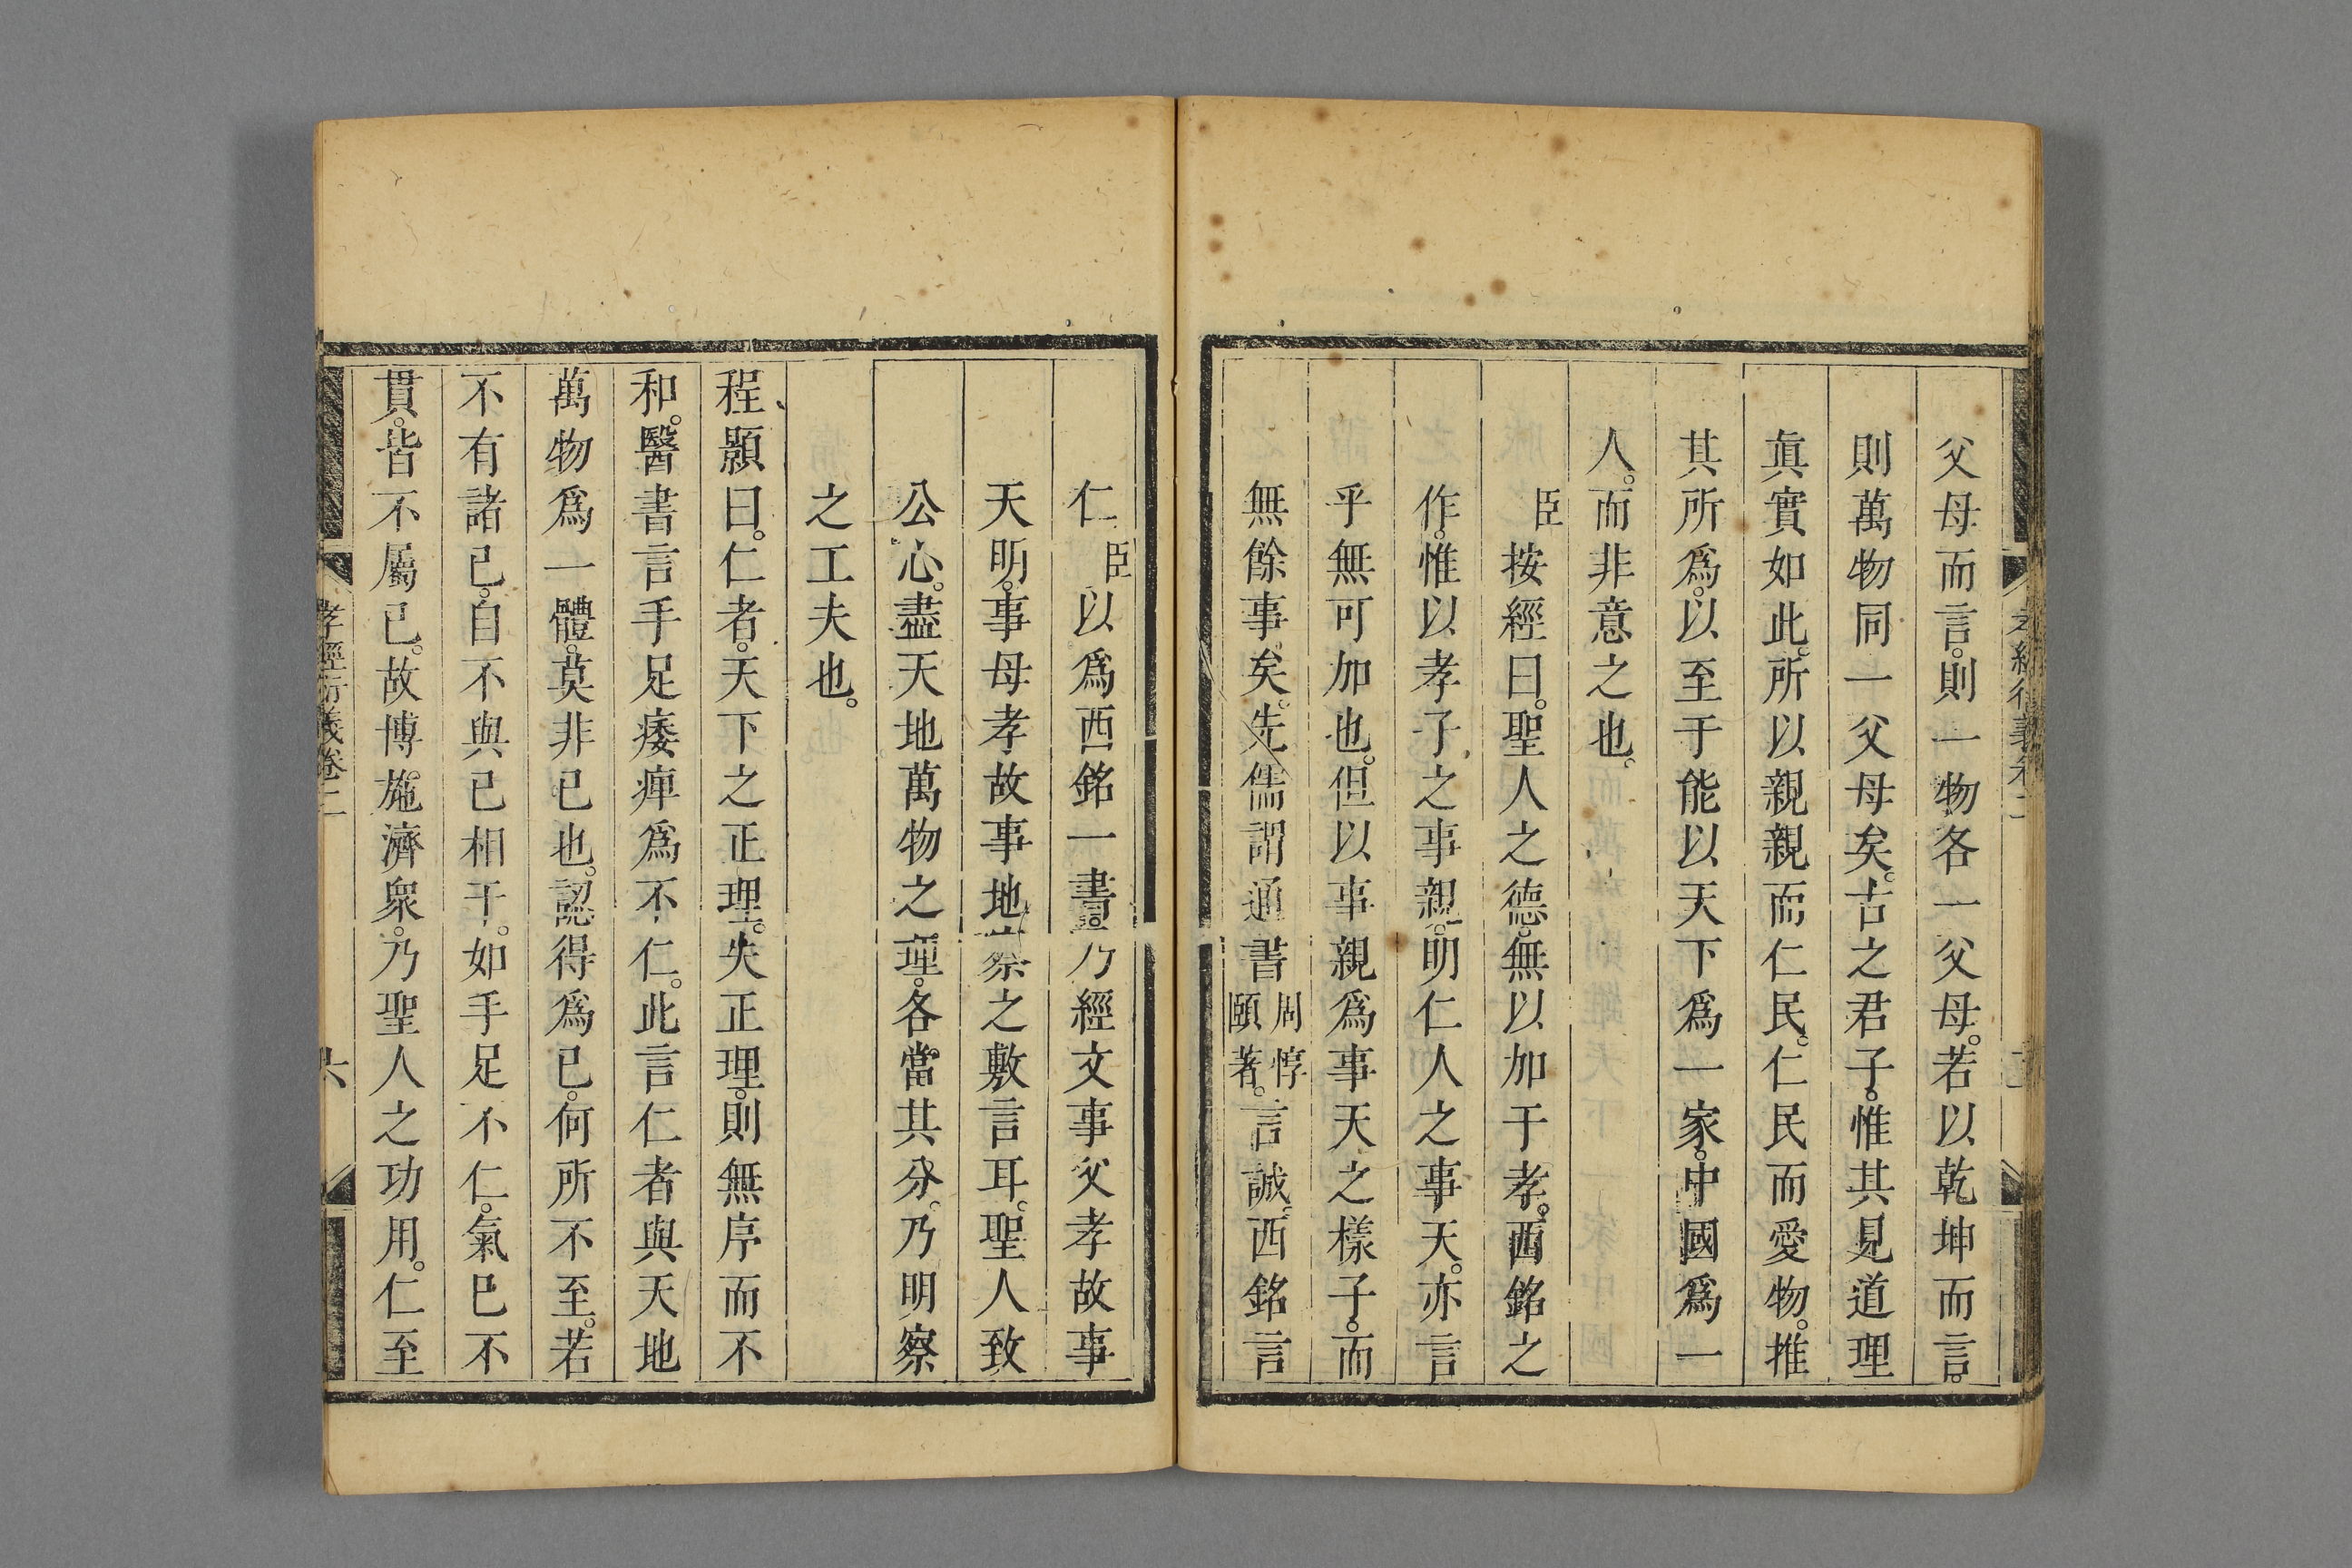 父母而言。則一物各一父母。若以乾坤而言。
則萬物同一父母矣。古之君子。惟其見道理
眞實如此。所以親親而仁民。仁民而愛物。推
其所爲。以至于能以天下爲一家。中國爲一
人。而非意之也。
臣按經曰。聖人之德。無以加于孝。西銘之
作。惟以孝子之事親。明仁人之事天。亦言
乎無可加也。但以事親爲事天之樣子。而
無餘事矣。先儒謂通書周惇頤著。言誠。西銘言
仁臣以爲西銘一書。乃經文事父孝故事
天明。事母孝故事地察之敷言耳。聖人致
公心。盡天地萬物之理。各當其分。乃明察
之工夫也。
程顥曰。仁者。天下之正理。失正理。則無序而不
和。醫書言手足痿痺爲不仁。此言仁者與天地
萬物爲一體。莫非已也。認得爲已。何所不至。若
不有諸已。自不與已相干。如手足不仁。氣已不
貫。皆不屬已。故博施濟衆。乃聖人之功用。仁至
孝經衍義卷二
六